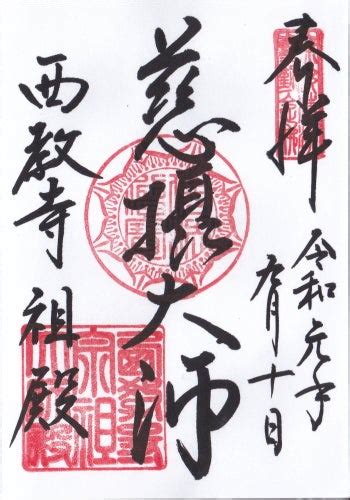 奉拝
令和元年
九月十日
慈摂大師
西教寺 祖殿